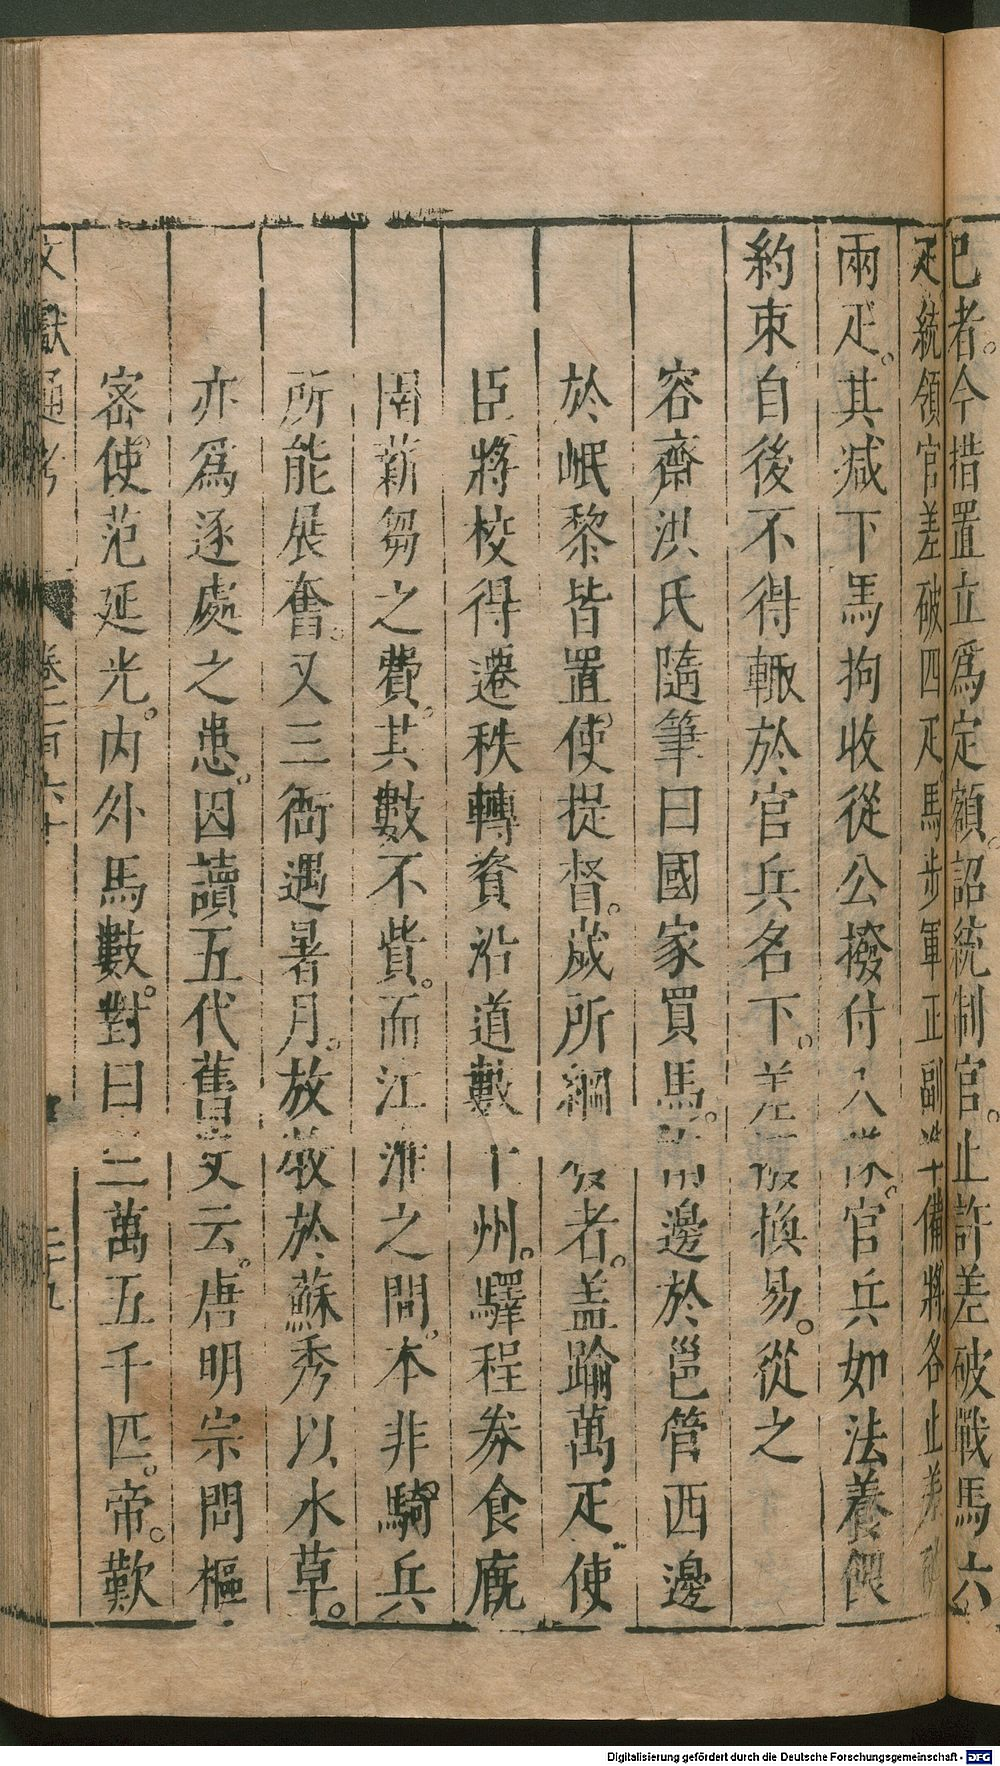 巳者。今措置立爲定額。詔統制官。止許差破戰馬六
疋統領官差破四疋。馬步軍正副準備將各止差破
兩疋。其减下馬拘收從公撥付入隊。官兵如法養餵
約束自後不得輙於官兵名下。差換易。從之
容齋洪氏隨筆曰國家買馬。邊於邕管西邊
於岷黎皆置使提督。歲所綱發者。盖踰萬疋使
臣將校得遷秩轉資沿道數十州。驛程券食廐
圉薪芻之費。其數不貲。而江淮之間。本非騎兵
所能展奮。又三衙遇暑月。放牧於蘇秀以水草。
亦爲逐處之患。因讀五代舊史云。唐明宗問樞
密使范延光。内外馬數。對曰三萬五千匹。帝。歎
文獻通考 卷一百六十 二十九
Digitalisierung gefördert durch die Deutsche Forschungsgemeinschaft - DFG